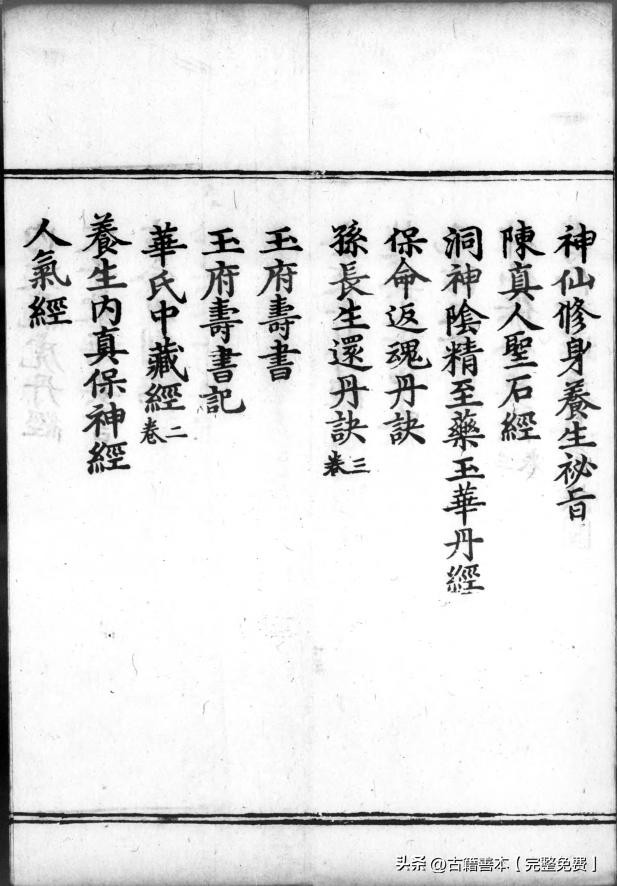 神仙修身養生祕旨
陳真人聖石經
洞神陰精至藥玉華丹經
保命返魂丹訣
孫長生還丹訣卷三
玉府壽書
玉府壽書記
華氏中藏經卷二
養生內真保神經
人氣經
头条 @古籍善本【完整免费】